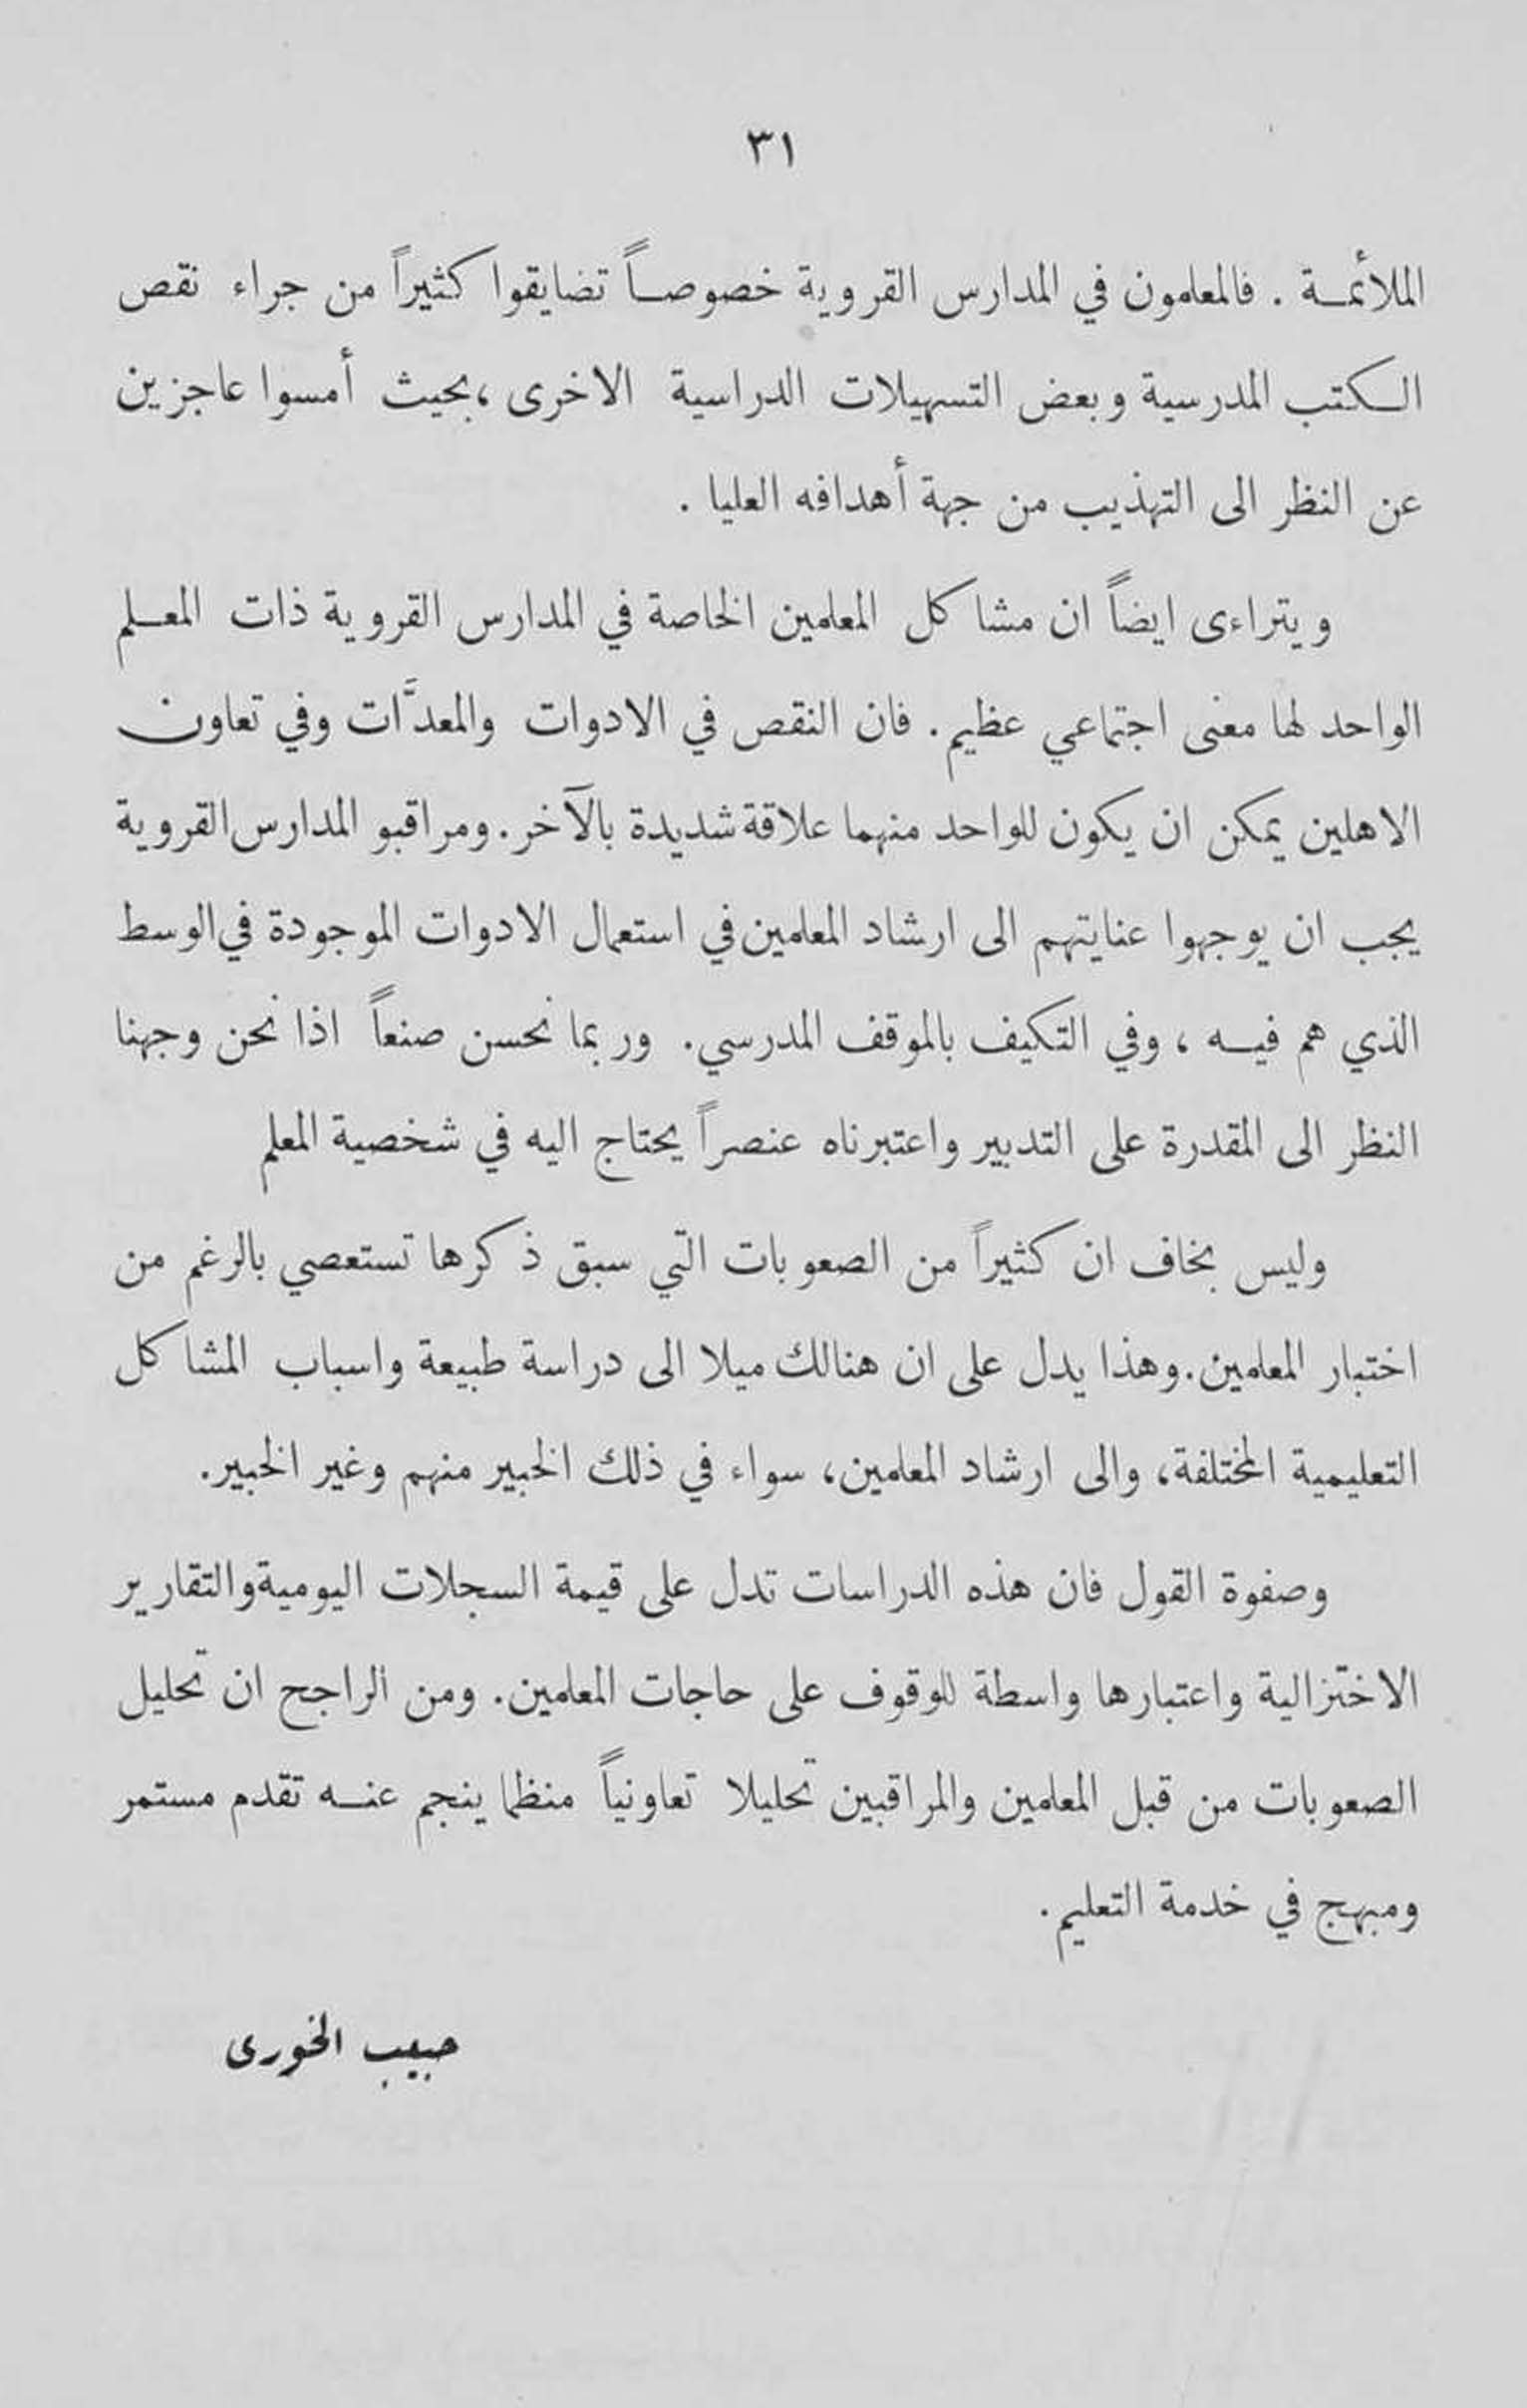 ٣١
الملائمة . فالمعلمون في المدارس القروية خصوصاً تضايقوا كثيراً من جراء نقص
الكتب المدرسية وبعض التسهيلات الدراسية الاخرى ، بحيث أمسوا عاجزين
عن النظر الى التهذيب من جهة أهدافه العليا .
ويتراءى ايضاً ان مشاكل المعلمين الخاصة في المدارس القروية ذات المعلم
الواحد لها معنى اجتماعي عظيم . فان النقص في الادوات والمعدَّات وفي تعاون
الاهلين يمكن ان يكون للواحد منهما علاقة شديدة بالآخر . ومراقبو المدارس القروية
يجب ان يوجهوا عنايتهم الى ارشاد المعلمين في استعمال الادوات الموجودة في الوسط
الذي هم فيه ، وفي التكيف بالموقف المدرسي . وربما نحسن صنعاً اذا نحن وجهنا
النظر الى المقدرة على التدبير واعتبرناه عنصراً يحتاج اليه في شخصية المعلم
وليس بخاف ان كثيراً من الصعوبات التي سبق ذكرها تستعصي بالرغم من
اختبار المعلمين . وهذا يدل على ان هنالك ميلا الى دراسة طبيعة واسباب المشاكل
التعليمية المختلفة، والى ارشاد المعلمين، سواء في ذلك الخبير منهم وغير الخبير .
وصفوة القول فان هذه الدراسات تدل على قيمة السجلات اليومية والتقارير
الاختزالية واعتبارها واسطة للوقوف على حاجات المعلمين . ومن الراجح ان تحليل
الصعوبات من قبل المعلمين والمراقبين تحليلا تعاونياً منظما ينجم عنه تقدم مستمر
ومبهج في خدمة التعليم .
حبيب الخورى